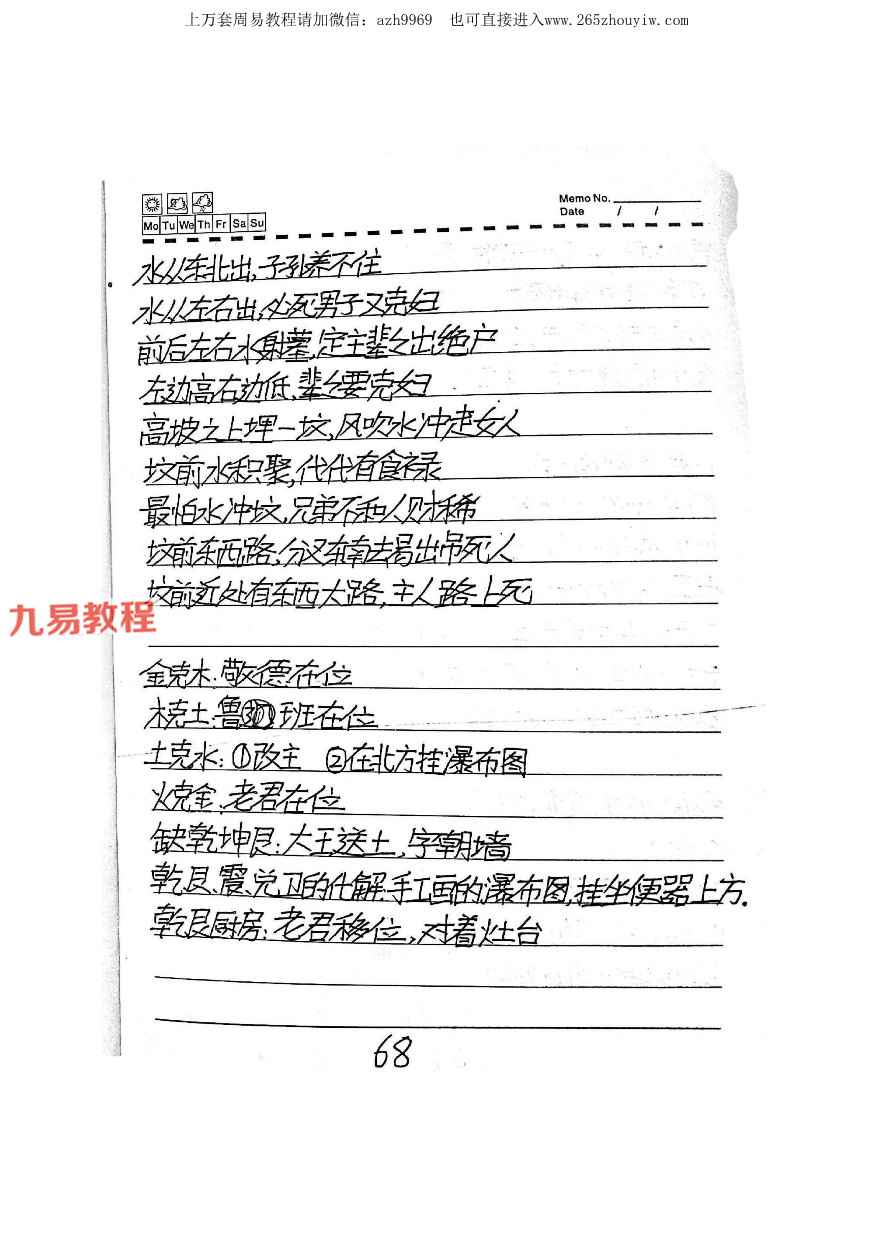 上万套周易教程请加微信：azh9969 也可直接进入www.265zhouyiw.com
Memo No.
Mo Tu We Th Fr Sa Su
Date / /
水从东北出,子孙养不住
水从左右出,必死男子又克妇
前后左右水射墓,定主辈々出绝户
左边高右边低,辈々要克妇
高坡之上埋一坟,风吹水冲走女人
坟前水积聚,代代有食禄
最怕水冲坟,兄弟不和人财稀
坟前东西路,分叉东南去易出吊死人
坟前近处有东西大路,主人路上死
九易教程
金克木:敬德在位
木克土:鲁班在位
土克水:①改主 ②在北方挂瀑布图
火克金:老君在位
缺乾坤艮:大王送土,字朝墙
乾艮、震、兑卫的化解:手工画的瀑布图,挂坐便器上方.
乾艮厨房:老君移位,对着灶台
68